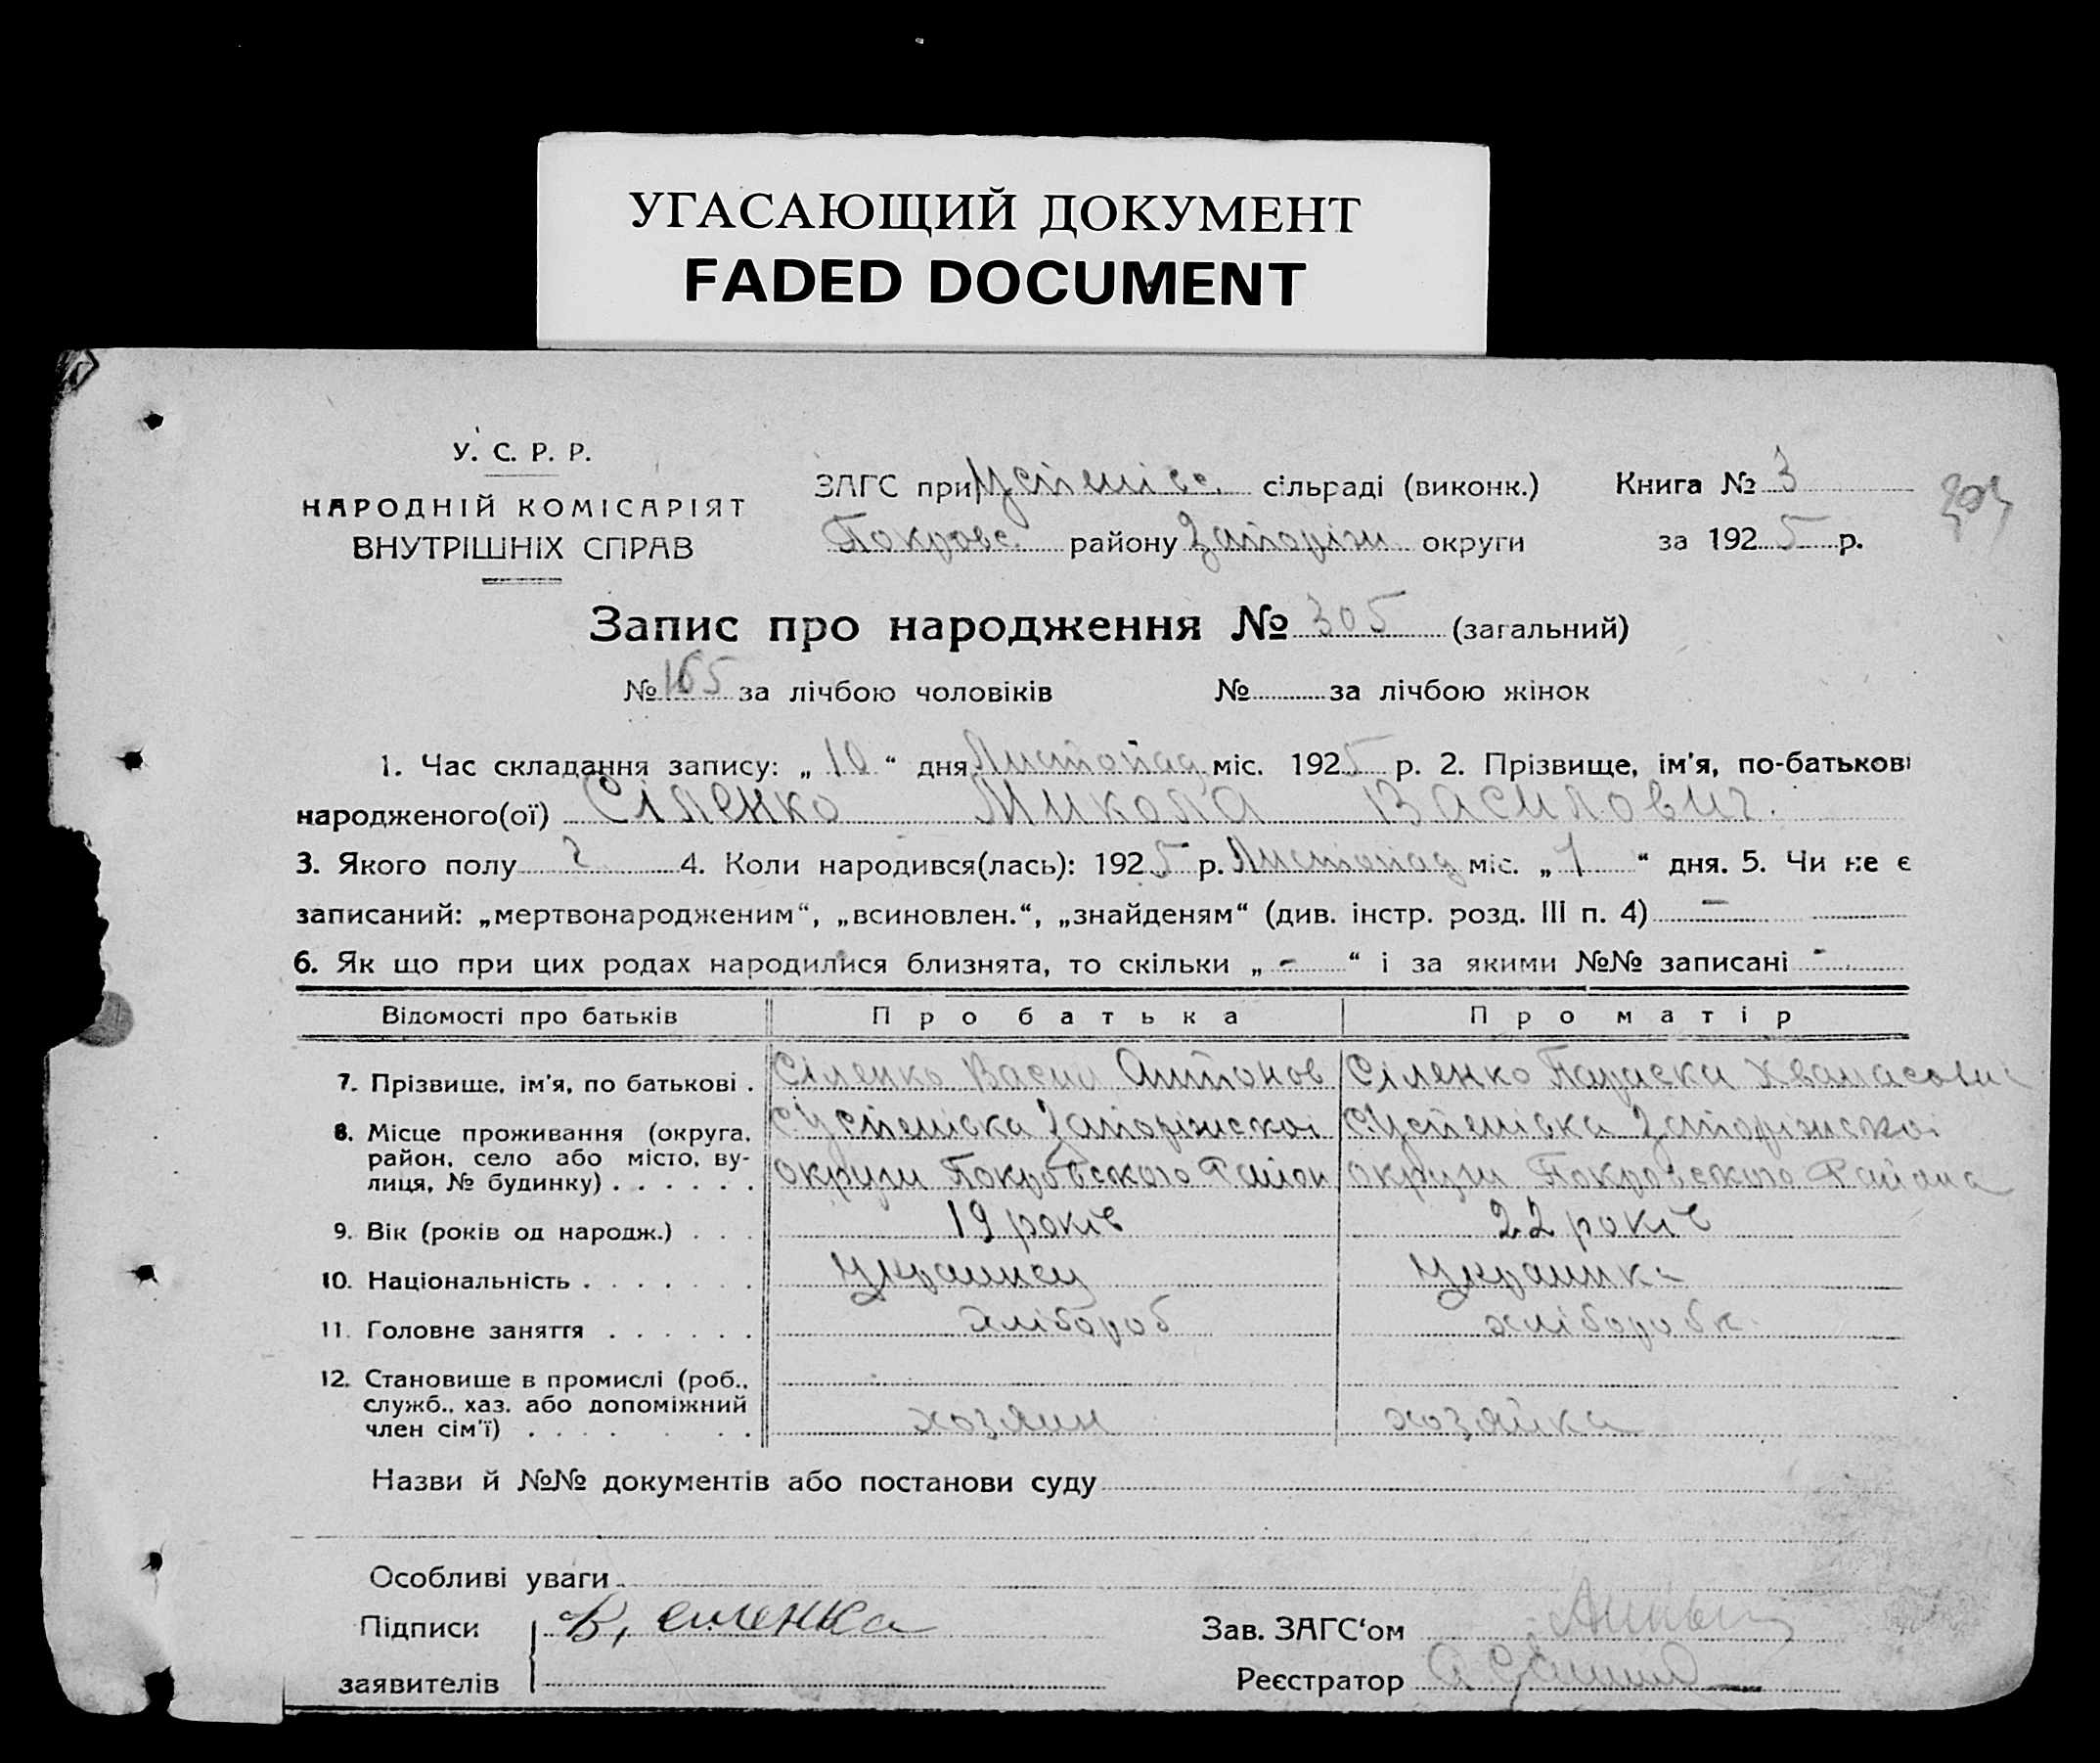 УГАСАЮЩИЙ ДОКУМЕНТ
FADED DOCUMENT
У. С. Р. Р.
НАРОДНІЙ КОМІСАРІЯТ
ВНУТРІШНІХ СПРАВ
ЗАГС при Успенівс. сільраді (виконк.) Книга № 3
Покровс. району Запоріж округи за 1925 р.
Запис про народження № 305 (загальний)
№ 165 за лічбою чоловіків № за лічбою жінок
1. Час складання запису: „ 10 “ дня Листопад міс. 1925 р. 2. Прізвище, ім'я, по-батькові
народженого(ої) Сіленко Микола Василович.
3. Якого полу ч 4. Коли народився(лась): 1925 р. Листопад міс. „ 7 “ дня. 5. Чи не є
записаний: „мертвонародженим“, „всиновлен.“, „знайденям“ (див. інстр. розд. III п. 4) -
6. Як що при цих родах народилися близнята, то скільки „ - “ і за якими №№ записані -
Відомості про батьків Про батька Про матір
7. Прізвище, ім'я, по батькові . Сіленко Васил Антонов Сіленко Параска
8. Місце проживання (округа, С. Успенівка Запоріжскої С. Успенівка Запоріжскої
район, село або місто, ву-
лиця, № будинку) . . . . . . округи Покровского Район округи Покровского Района
9. Вік (років од народж.) . . . 19 років 22 років
10. Національність . . . . . . . Украинец Украинка
11. Головне заняття . . . . . . хлібороб хлібороbк
12. Становище в промислі (роб.,
служб., хаз. або допоміжний
член сім'ї) . . . . . . . хозяин хозяйка
Назви й №№ документів або постанови суду
Особливі уваги
Підписи В,
заявителів
Зав. ЗАГС‘ом
Реєстратор